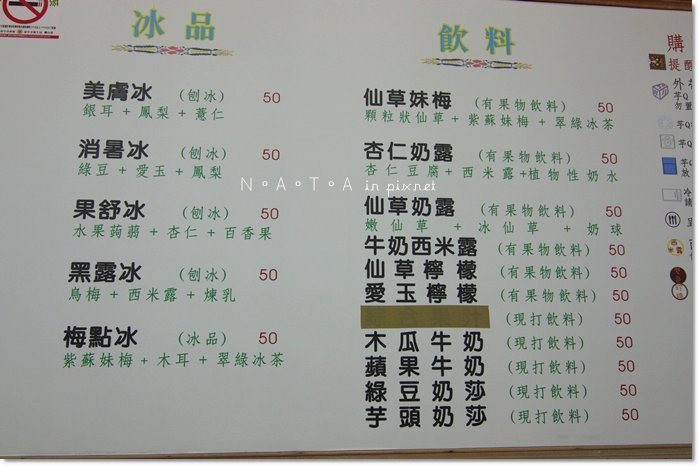 冰品
美膚冰 (刨冰) 50
銀耳+鳳梨+薏仁
消暑冰 (刨冰) 50
綠豆+愛玉+鳳梨
果舒冰 (刨冰) 50
水果蒟蒻+杏仁+百香果
黑露冰 (刨冰) 50
烏梅+西米露+煉乳
梅點冰 (冰品) 50
紫蘇妹梅+木耳+翠綠冰茶
飲料
仙草妹梅 (有果物飲料) 50
顆粒狀仙草+紫蘇妹梅+翠綠冰茶
杏仁奶露 (有果物飲料) 50
杏仁豆腐+西米露+植物性奶水
仙草奶露 (有果物飲料) 50
嫩仙草+冰仙草+奶球
牛奶西米露 (有果物飲料) 50
仙草檸檬 (有果物飲料) 50
愛玉檸檬 (有果物飲料) 50
綜合果汁 (現打飲料) 50
木瓜牛奶 (現打飲料) 50
蘋果牛奶 (現打飲料) 50
綠豆奶莎 (現打飲料) 50
芋頭奶莎 (現打飲料) 50
購
提醒
N∘A∘T∘A in pixnet